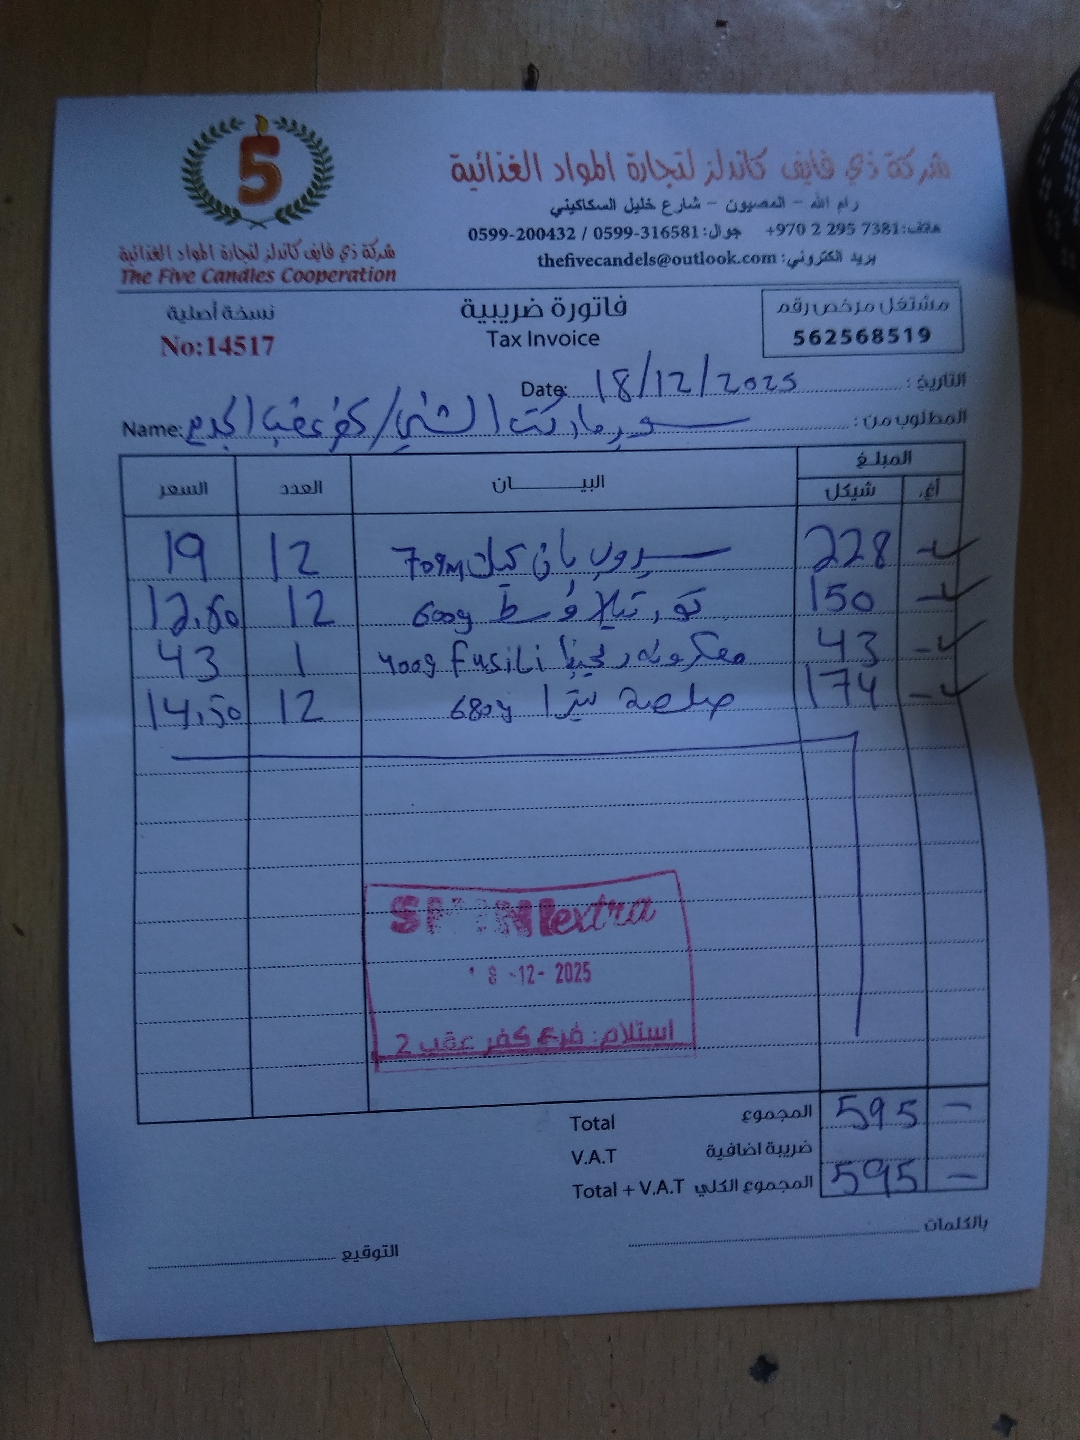 5
شركة ذي فايف كاندلز لتجارة المواد الغذائية
The Five Candles Cooperation
شركة ذي فايف كاندلز لتجارة المواد الغذائية
رام الله - المصيون - شارع خليل السكاكيني
هاتف: +970 2 295 7381 جوال: 0599-316581 / 0599-200432
بريد الكتروني: thefivecandels@outlook.com
نسخة أصلية
No:14517
فاتورة ضريبية
Tax Invoice
مشتغل مرخص رقم
562568519
التاريخ: 18/12/2025 Date:
المطلوب من: سوبر ماركت الشني / كفر عقب الجديد Name:
المبلغ
أغ. شيكل البيـــــان العدد السعر
- 228 سيروب بان كيك 709M 12 19
- 150 تورتيلا وسط 600g 12 12.50
- 43 معكرونة ريجينا Fusili 400g 1 43
- 174 صلصة تيرا 680g 12 14.50
extra
18-12-2025
استلام: فرع كفر عقب 2
Total المجموع 595 -
V.A.T ضريبة اضافية
Total + V.A.T المجموع الكلي 595 -
بالكلمات
التوقيع